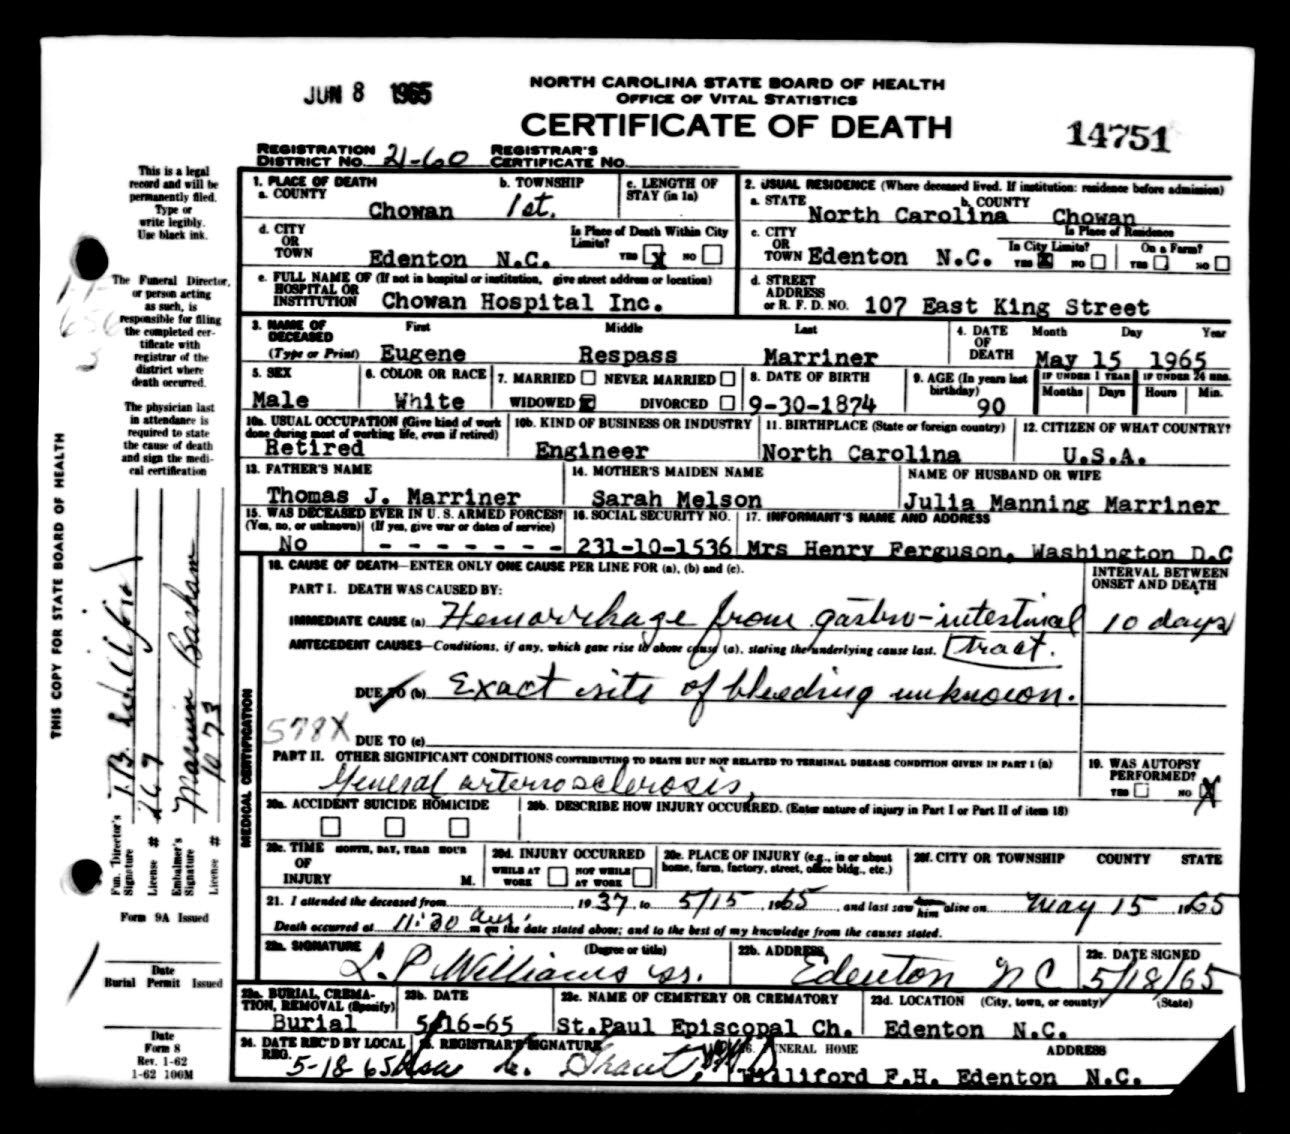 JUN 8 1965
NORTH CAROLINA STATE BOARD OF HEALTH
OFFICE OF VITAL STATISTICS
CERTIFICATE OF DEATH
14751
REGISTRATION DISTRICT NO. 21-60 REGISTRAR'S CERTIFICATE NO.
This is a legal
record and will be
permanently filed.
Type or
write legibly.
Use black ink.
The Funeral Director,
or person acting
as such, is
responsible for filing
the completed cer-
tificate with
registrar of the
district where
death occurred.
The physician last
in attendance is
required to state
the cause of death
and sign the medi-
cal certification
THIS COPY FOR STATE BOARD OF HEALTH
Fun. Director's Signature
License #
Embalmer's Signature Marvin Basham
License # 1073
Form 9A Issued
Date
Burial Permit Issued
Date
Form 8
Rev. 1-62
1-62 100M
1. PLACE OF DEATH
a. COUNTY Chowan
b. TOWNSHIP 1st.
c. LENGTH OF STAY (in 1a)
d. CITY OR TOWN Edenton N.C.
Is Place of Death Within City Limits? YES X NO
e. FULL NAME OF HOSPITAL OR INSTITUTION (If not in hospital or institution, give street address or location)
Chowan Hospital Inc.
2. USUAL RESIDENCE (Where deceased lived. If institution: residence before admission)
a. STATE North Carolina
b. COUNTY Chowan
c. CITY OR TOWN Edenton N.C.
Is Place of Residence
In City Limits? YES X NO
On a Farm? YES NO
d. STREET ADDRESS or R. F. D. NO. 107 East King Street
3. NAME OF DECEASED (Type or Print)
First Eugene
Middle Respass
Last Marriner
4. DATE OF DEATH Month Day Year
May 15 1965
5. SEX Male
6. COLOR OR RACE White
7. MARRIED NEVER MARRIED
WIDOWED X DIVORCED
8. DATE OF BIRTH 9-30-1874
9. AGE (In years last birthday) 90
IF UNDER 1 YEAR Months Days
IF UNDER 24 HRS. Hours Min.
10a. USUAL OCCUPATION (Give kind of work done during most of working life, even if retired)
Retired
10b. KIND OF BUSINESS OR INDUSTRY
Engineer
11. BIRTHPLACE (State or foreign country)
North Carolina
12. CITIZEN OF WHAT COUNTRY?
U.S.A.
13. FATHER'S NAME
Thomas J. Marriner
14. MOTHER'S MAIDEN NAME
Sarah Melson
NAME OF HUSBAND OR WIFE
Julia Manning Marriner
15. WAS DECEASED EVER IN U. S. ARMED FORCES?
(Yes, no, or unknown) (If yes, give war or dates of service)
No - - - - - - -
16. SOCIAL SECURITY NO.
231-10-1536
17. INFORMANT'S NAME AND ADDRESS
Mrs Henry Ferguson, Washington D.C
MEDICAL CERTIFICATION
18. CAUSE OF DEATH—ENTER ONLY ONE CAUSE PER LINE FOR (a), (b) and (c).
INTERVAL BETWEEN ONSET AND DEATH
PART I. DEATH WAS CAUSED BY:
IMMEDIATE CAUSE (a) Hemorrhage from gastro-intestinal tract. 10 days
ANTECEDENT CAUSES—Conditions, if any, which gave rise to above cause (a), stating the underlying cause last.
DUE TO (b) Exact site of bleeding unknown.
578X
DUE TO (c)
PART II. OTHER SIGNIFICANT CONDITIONS CONTRIBUTING TO DEATH BUT NOT RELATED TO TERMINAL DISEASE CONDITION GIVEN IN PART I (a)
General arteriosclerosis,
19. WAS AUTOPSY PERFORMED?
YES NO X
20a. ACCIDENT SUICIDE HOMICIDE
20b. DESCRIBE HOW INJURY OCCURRED. (Enter nature of injury in Part I or Part II of item 18)
20c. TIME OF INJURY MONTH, DAY, YEAR HOUR M.
20d. INJURY OCCURRED
WHILE AT WORK NOT WHILE AT WORK
20e. PLACE OF INJURY (e.g., in or about home, farm, factory, street, office bldg., etc.)
20f. CITY OR TOWNSHIP COUNTY STATE
21. I attended the deceased from 1937, to 5/15, 1965, and last saw him alive on May 15 1965
Death occurred at 11:30 a.m. on the date stated above; and to the best of my knowledge from the causes stated.
22a. SIGNATURE (Degree or title)
L. P. Williams
22b. ADDRESS
Edenton NC
22c. DATE SIGNED
5/18/65
23a. BURIAL, CREMATION, REMOVAL (Specify)
Burial
23b. DATE
5/16-65
23c. NAME OF CEMETERY OR CREMATORY
St.Paul Episcopal Ch.
23d. LOCATION (City, town, or county) (State)
Edenton N.C.
24. DATE REC'D BY LOCAL REG.
5-18-65
25. REGISTRAR'S SIGNATURE
26. FUNERAL HOME ADDRESS
Williford F.H. Edenton N.C.